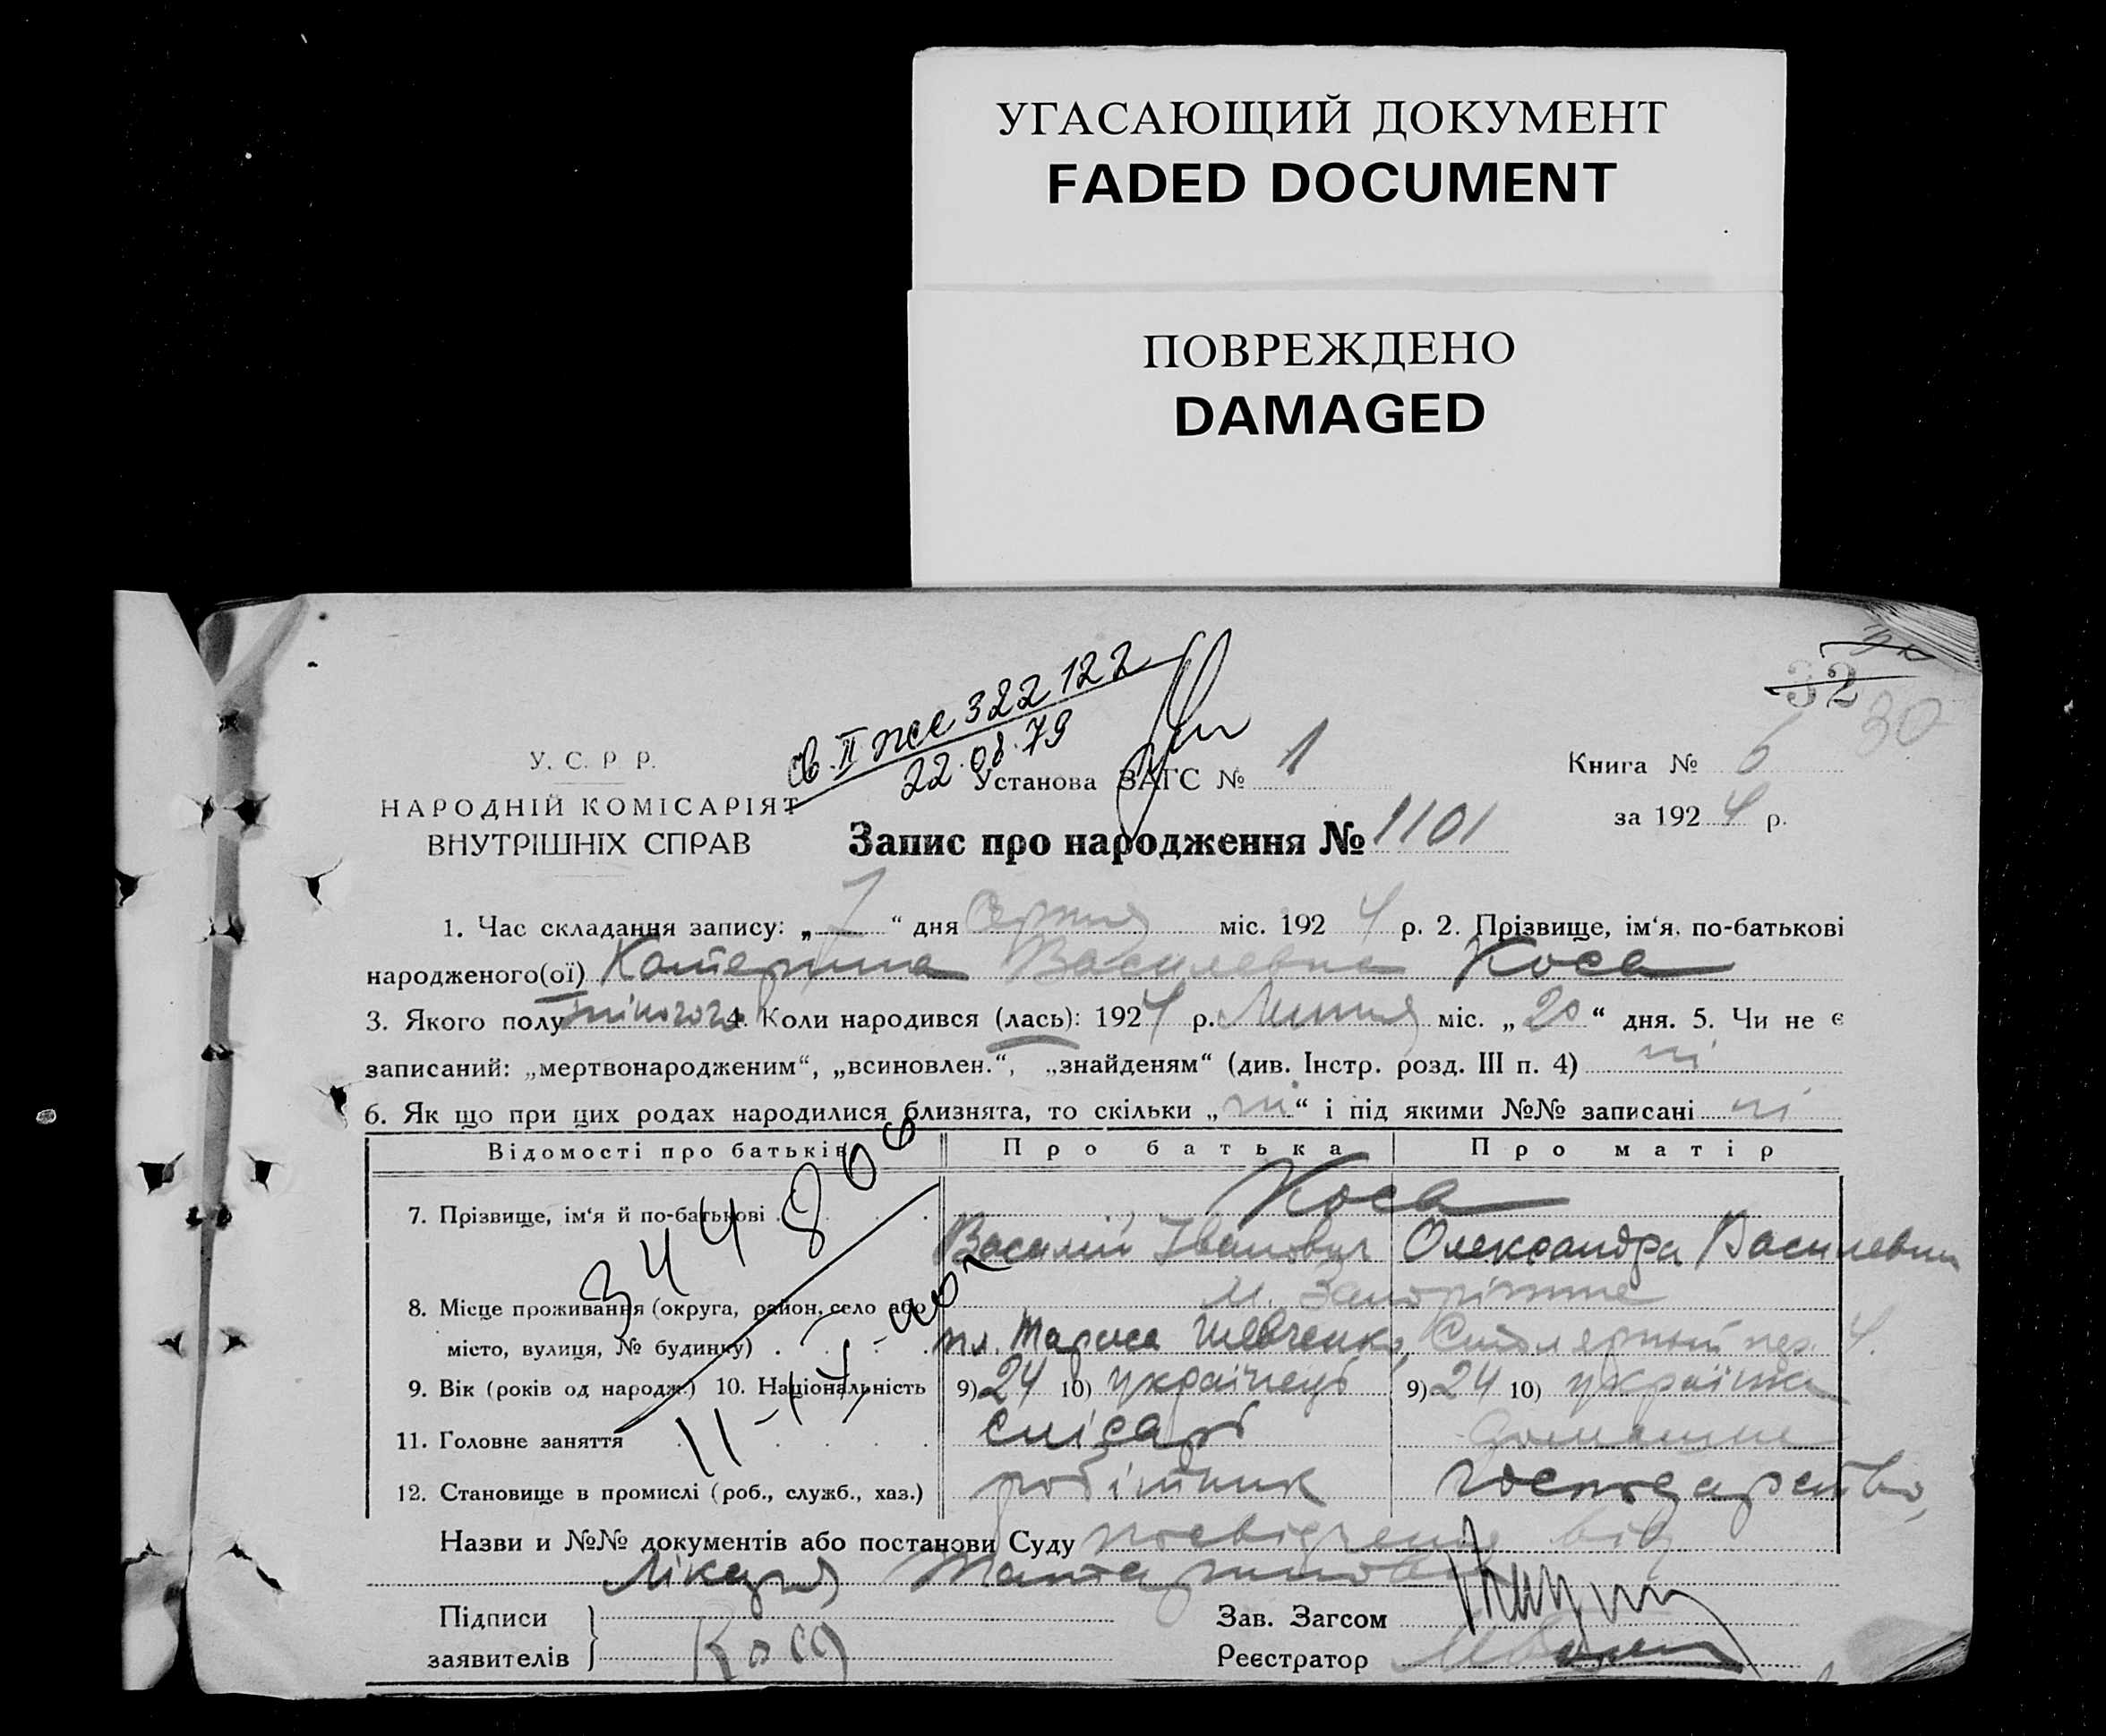 УГАСАЮЩИЙ ДОКУМЕНТ
FADED DOCUMENT
ПОВРЕЖДЕНО
DAMAGED
32
30
св. II же 322122
22.08.79
У. С. Р. Р.
НАРОДНІЙ КОМІСАРІЯТ
ВНУТРІШНІХ СПРАВ
Установа ЗАГС № 1
Книга № 6
за 1924 р.
Запис про народження № 1101
1. Час складання запису: „7“ дня Серпня міс. 1924 р. 2. Прізвище, ім‘я, по-батькові
народженого(ої) Катерина Василевна Коса
3. Якого полу жіночого 4. Коли народився (лась): 1924 р. Липня міс. „20“ дня. 5. Чи не є
записаний: „мертвонародженим“, „всиновлен.“, „знайденям“ (див. Інстр. розд. III п. 4) ні
6. Як що при цих родах народилися близнята, то скільки „ні“ і під якими №№ записані ні
Відомості про батьків Про батька Про матір
344806
7. Прізвище, ім‘я й по-батькові Коса
Василий Іванович Олександра Василевна
8. Місце проживання (округа, район, село або м. Запоріжже
місто, вулиця, № будинку) пл. Тараса Шевченко, Столярный пер. 4.
9. Вік (років од народж.) 10. Національність 9) 24 10) українець 9) 24 10) українка
11. Головне заняття слісарь домашне
12. Становище в промислі (роб., служб., хаз.) робітник господарство
Назви и №№ документів або постанови Суду посвідчення від
лікаря
Підписи
заявителів Коса
Зав. Загсом
Реєстратор